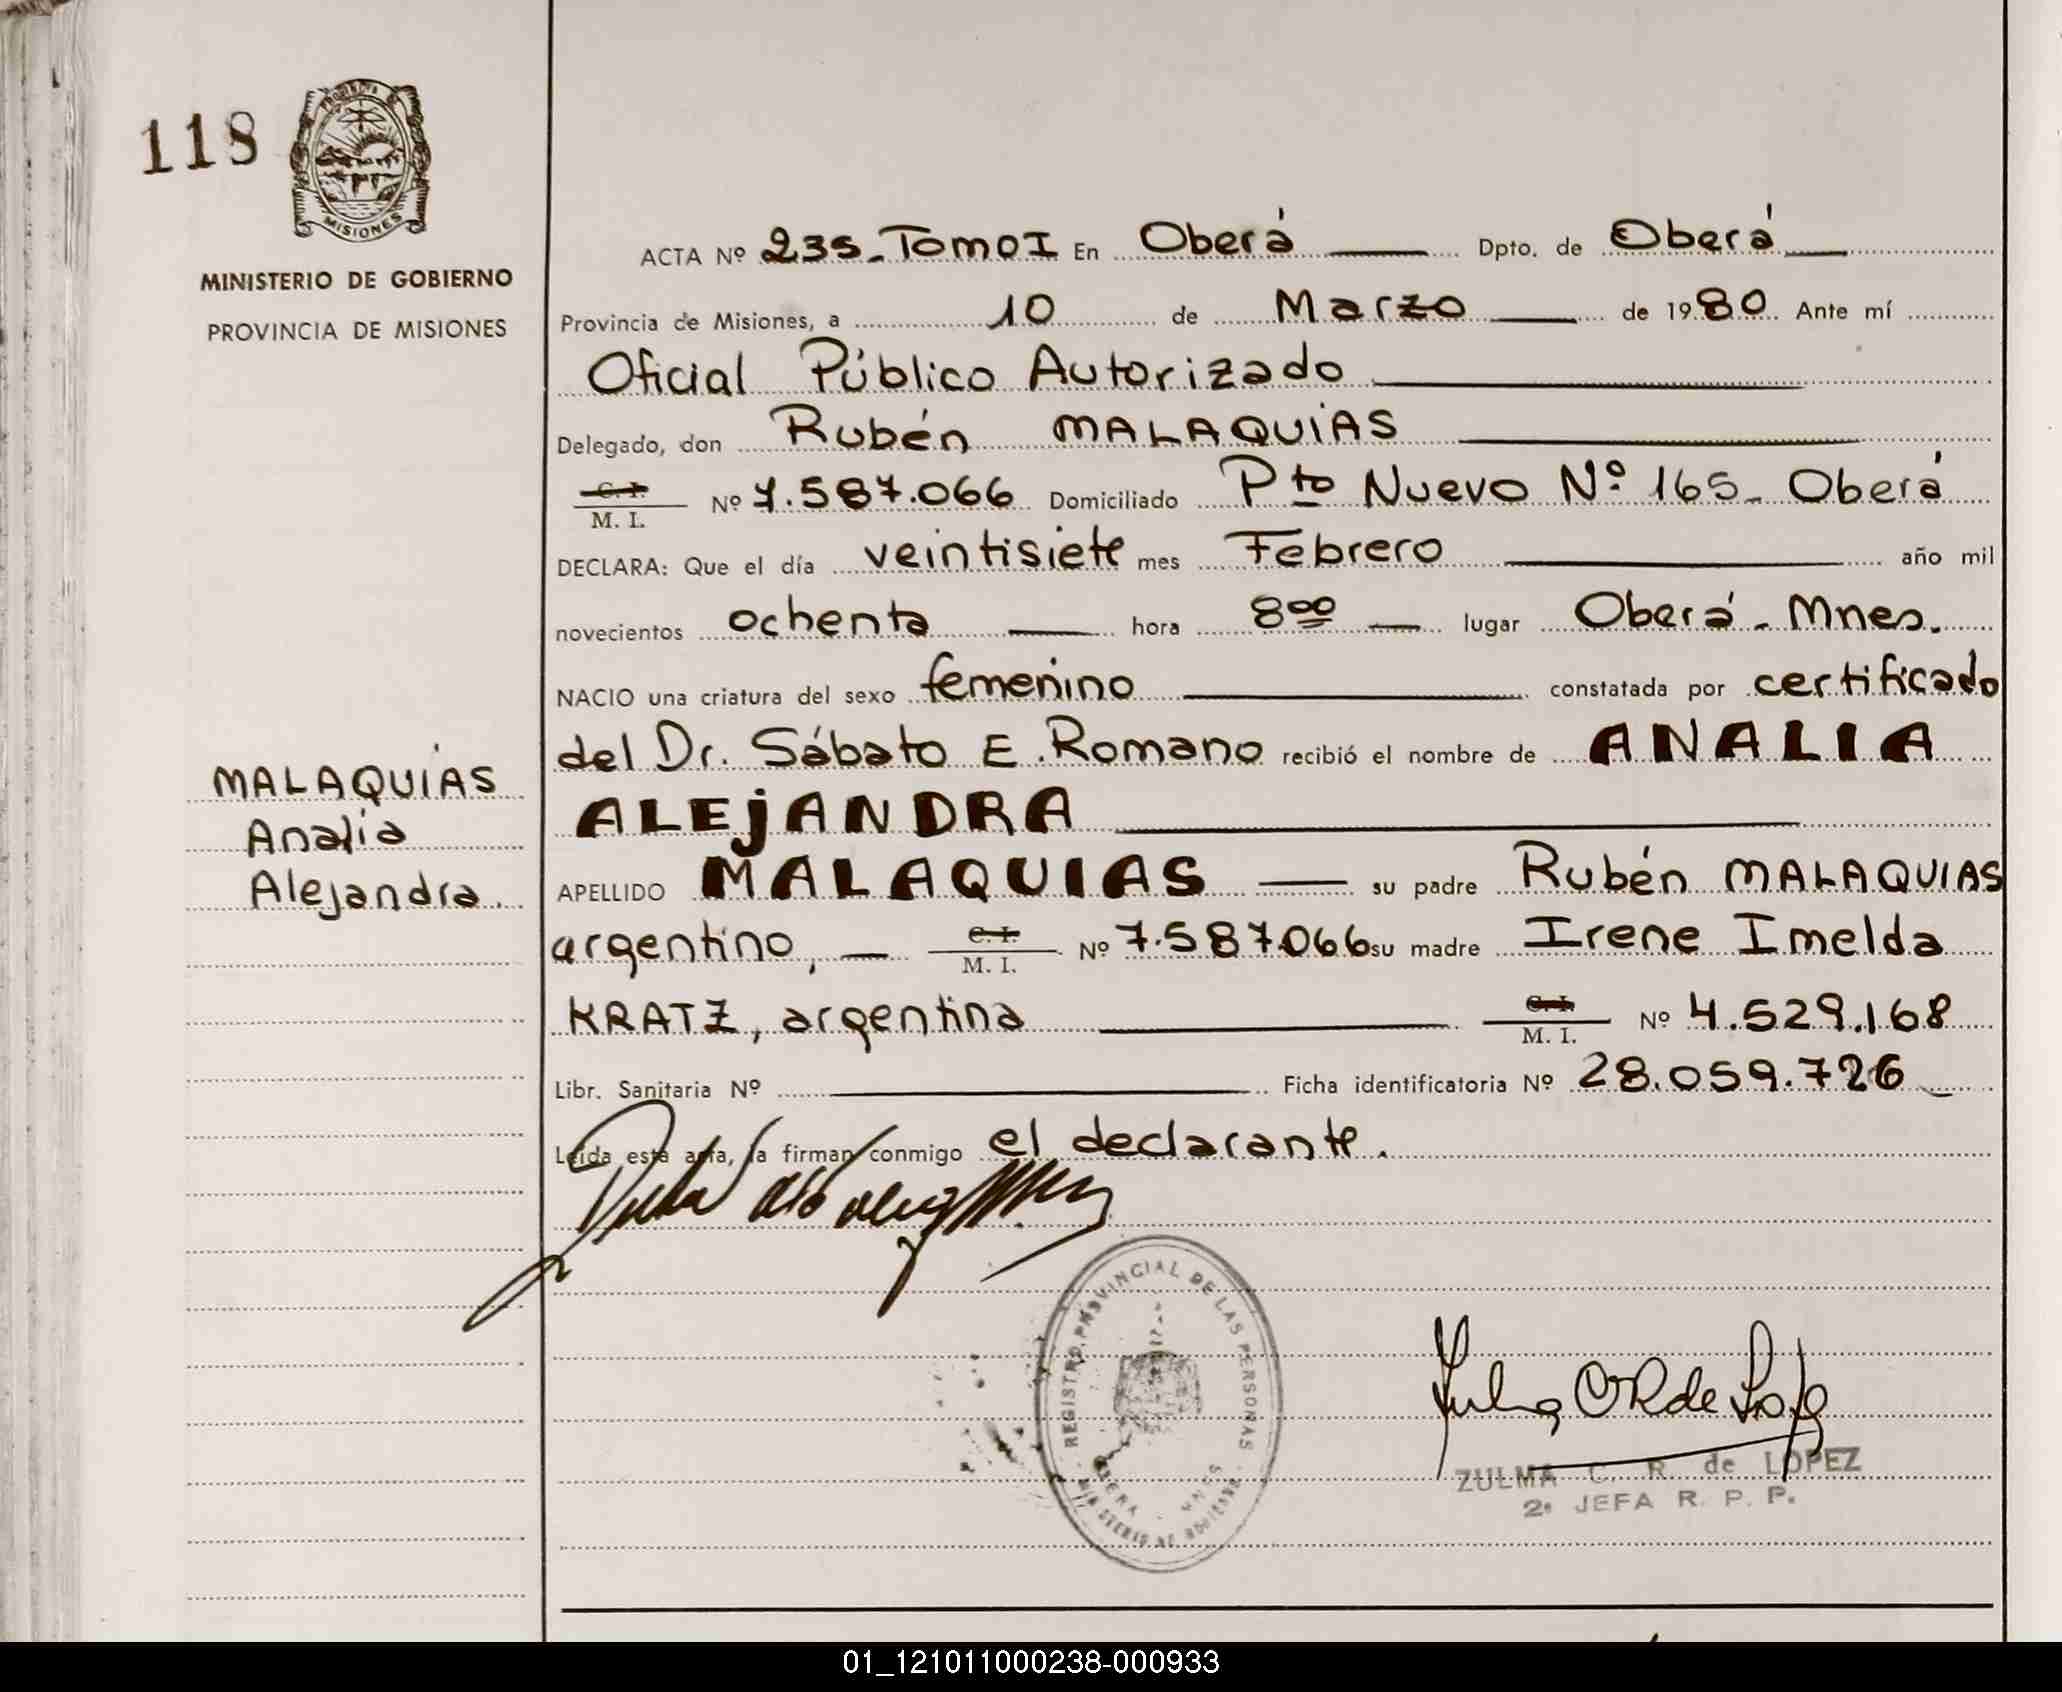 118
PROVINCIA DE
MISIONES
MINISTERIO DE GOBIERNO
PROVINCIA DE MISIONES
MALAQUIAS
Analía
Alejandra.
ACTA Nº 235_ Tomo I En Oberá Dpto. de Oberá
Provincia de Misiones, a 10 de Marzo de 1980 Ante mí
Oficial Público Autorizado
Delegado, don Rubén MALAQUIAS
C. I. / M. I. Nº 7.587.066 Domiciliado Pto Nuevo Nº 165_ Oberá
DECLARA: Que el día veintisiete mes Febrero año mil
novecientos ochenta hora 8 00 lugar Oberá - Mnes.
NACIO una criatura del sexo femenino constatada por certificado
del Dr. Sábato E. Romano recibió el nombre de ANALIA
ALEJANDRA
APELLIDO MALAQUIAS su padre Rubén MALAQUIAS
argentino, C. I. / M. I. Nº 7.587.066 su madre Irene Imelda
KRATZ, argentina C. I. / M. I. Nº 4.529.168
Libr. Sanitaria Nº Ficha identificatoria Nº 28.059.726
Leída esta acta, la firman conmigo el declarante.
REGISTRO PROVINCIAL DE LAS PERSONAS
OBERA MNES
MINISTERIO DE GOBIERNO
Zulma C R de López
ZULMA C. R. de LOPEZ
2º JEFA R. P. P.
01_121011000238-000933